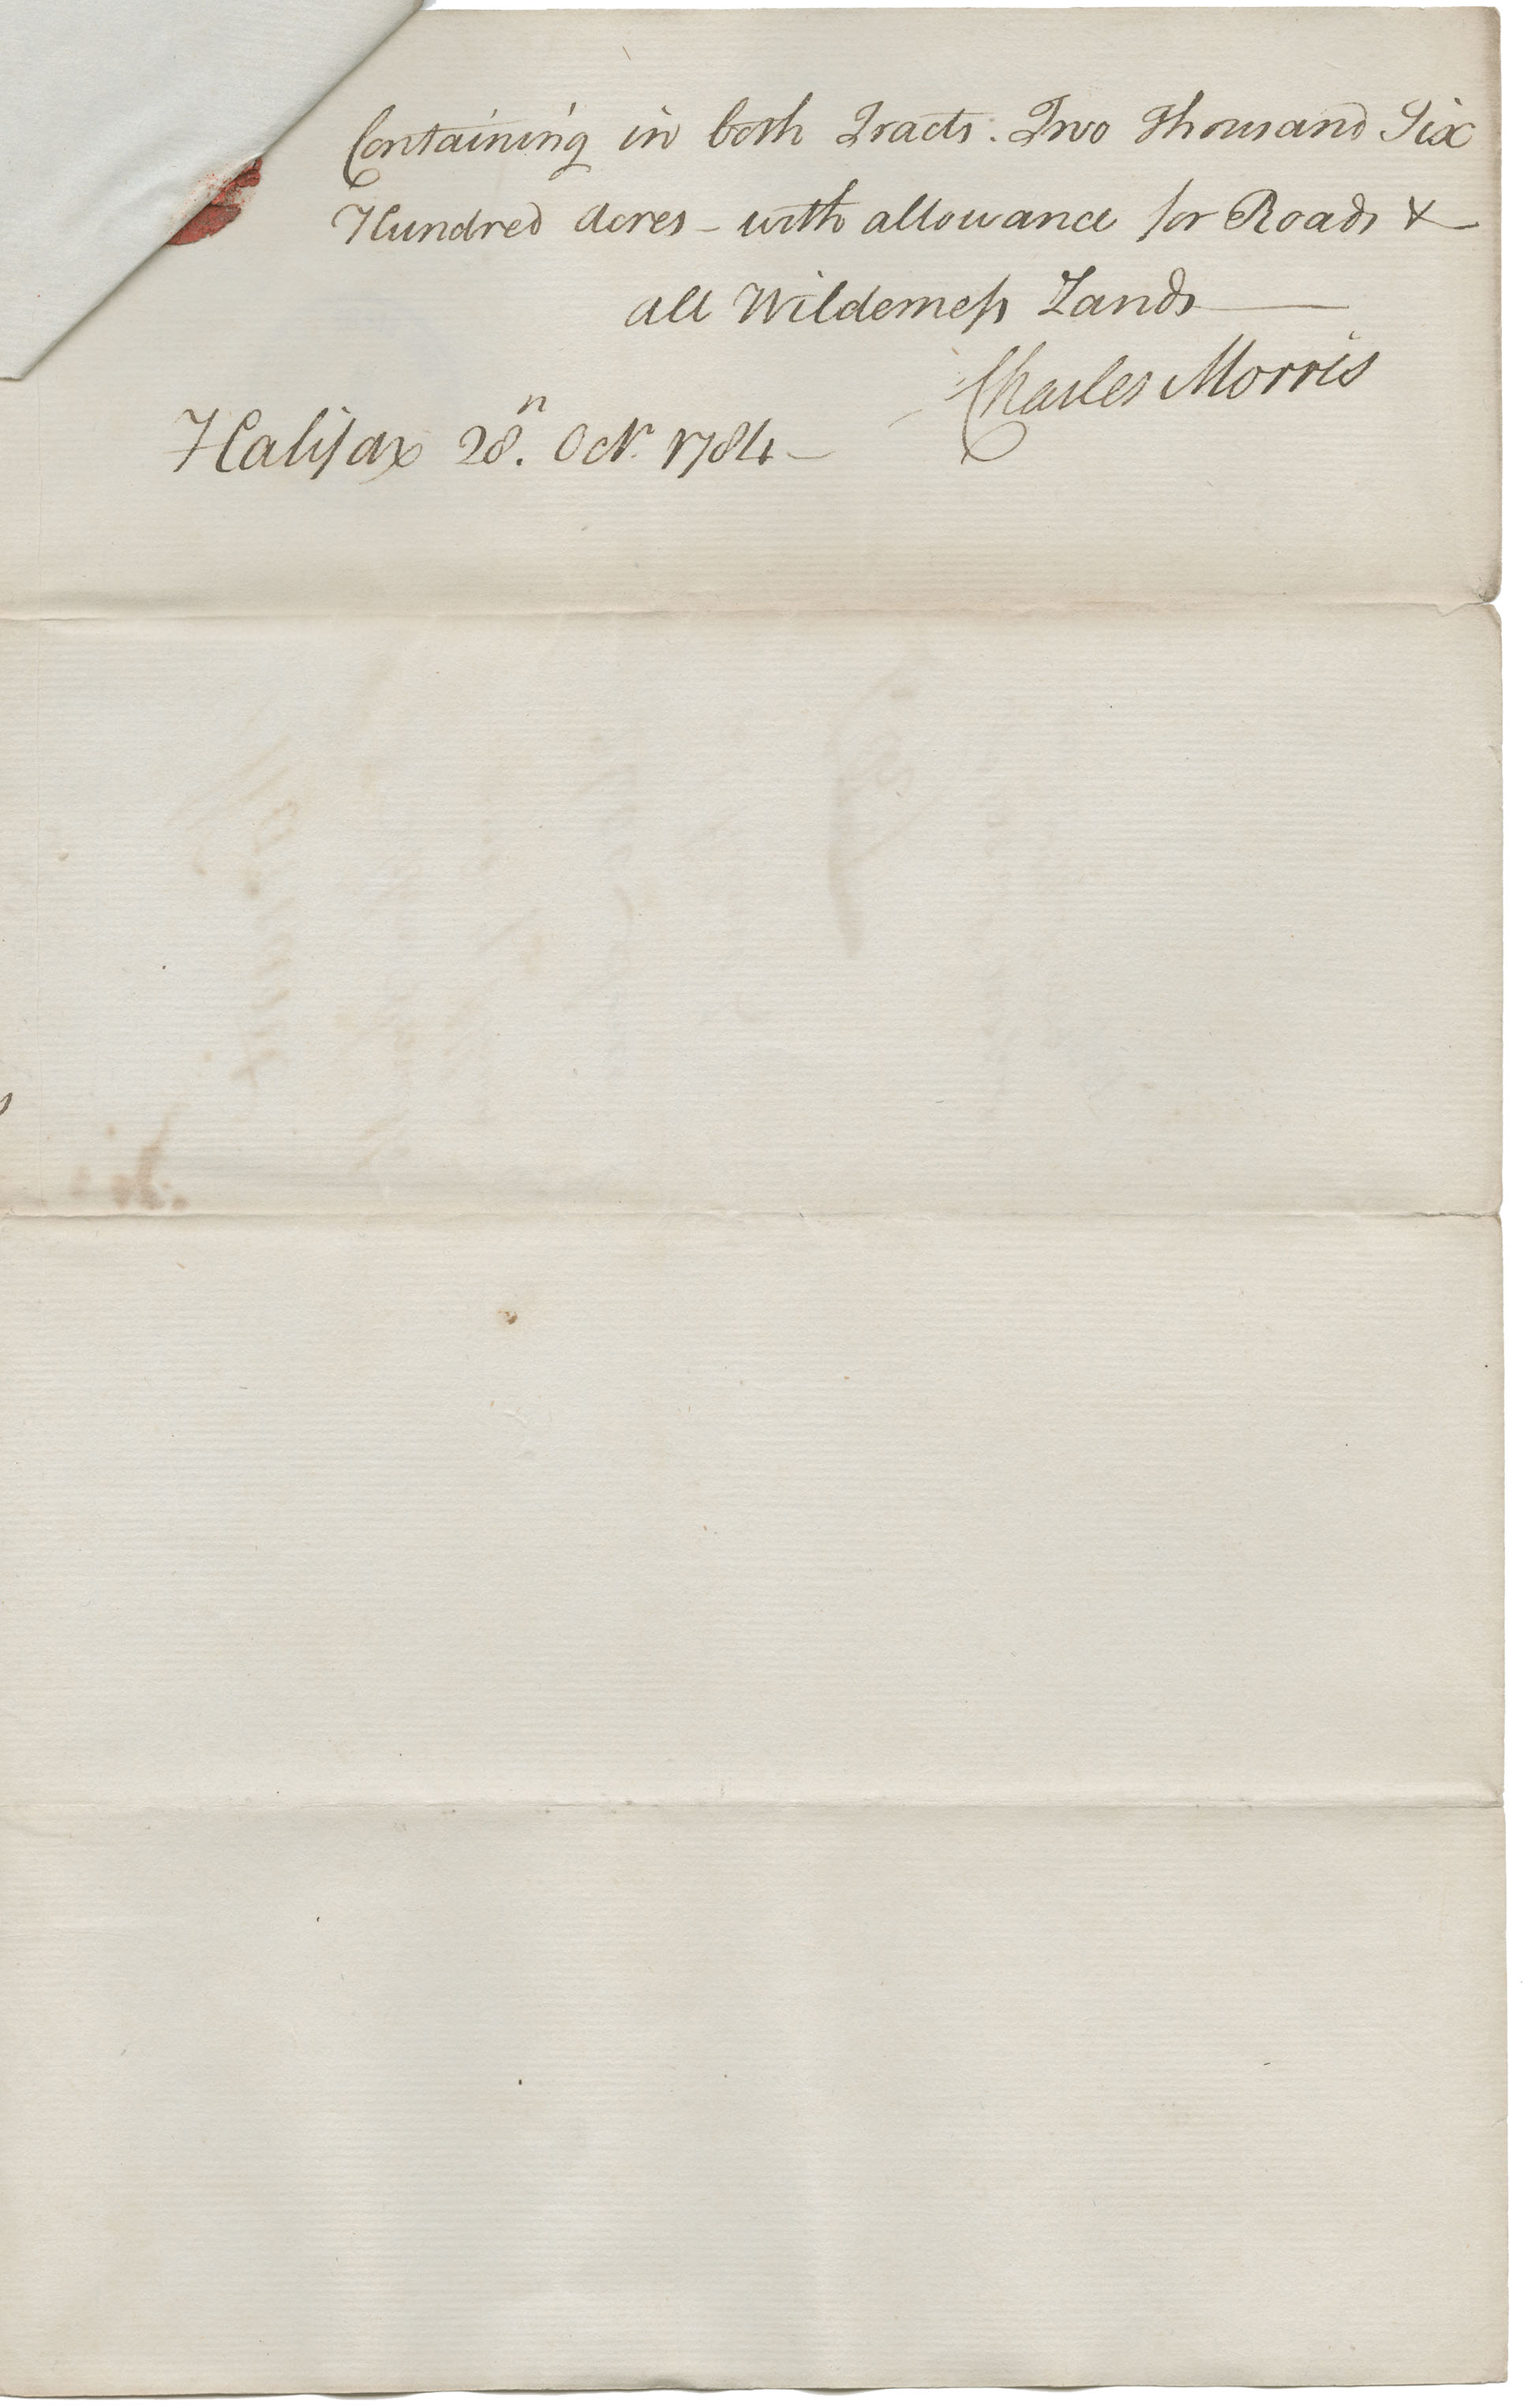 Containing in both Tracts. Two Thousand Six
Hundred Acres – with allowance for Roads &
all Wilderneſs Lands
Charles Morris
Halifax 28.ⁿ Octr. 1784 –